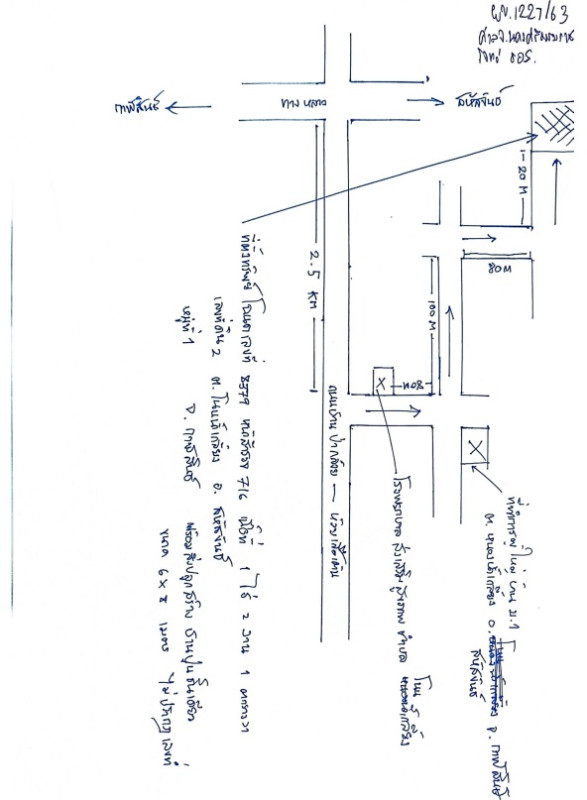 ผบ.1227/63
ศาลจ.นครศรีธรรมราช
โจทก์ ธอส.
กาฬสินธุ์
ทางหลวง
สหัสขันธ์
20 M
80M
100 M
80M
2.5 KM
X
X
ถนนบ้านป่ากล้วย —
ที่ตั้งทรัพย์ โฉนดเลขที่ 8379 716 เนื้อที่ 1 ไร่ 2 งาน 1 ตารางวา
เลขที่ดิน 2 ต.โนนน้ำเกลี้ยง อ. สหัสขันธ์
หมู่ที่ 1 จ. กาฬสินธุ์ พร้อมสิ่งปลูกสร้าง บ้านปูนชั้นเดียว
ขนาด 6 x 8 เมตร ไม่ปรากฏเลขที่
โรงพยาบาลส่งเสริมสุขภาพตำบล โนนน้ำเกลี้ยง
ที่ทำการผู้ใหญ่บ้าน ม.1
ต. น้ำเกลี้ยง อ. สหัสขันธ์ จ. กาฬสินธุ์